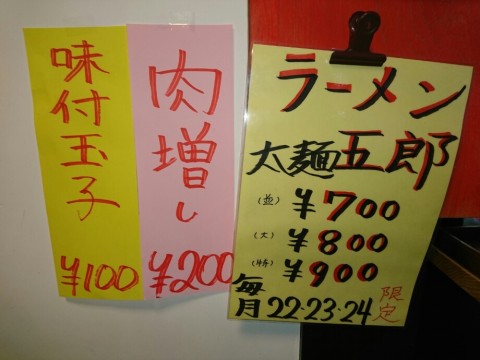 味付玉子
¥100
肉増し
¥200
ラーメン
太麺五郎
(並) ¥700
(大) ¥800
(特) ¥900
毎月22・23・24限定